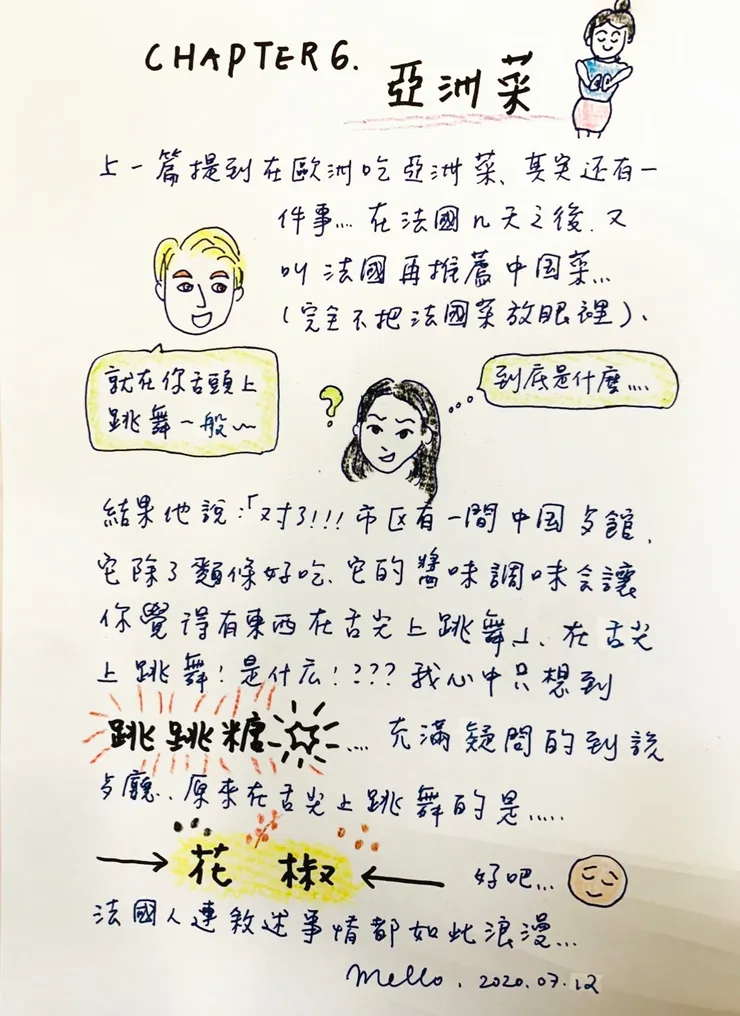 CHAPTER 6.
亞洲菜
上一篇提到在歐洲吃亞洲菜、其实还有一
件事... 在法國n天之後，又
叫法國再推薦中国菜...
(完全不把法國菜放眼裡)、
就在你舌頭上
跳舞一般~
?
到底是什麼....
結果他說:「对了!!! 市区有一間中国歺館，
它除了麵條好吃、它的醬味調味会讓
你覺得有東西在舌尖上跳舞」、在舌尖
上跳舞! 是什広! ??? 我心中只想到
跳跳糖 .... 充滿疑問的到該
歺廳.. 原來在舌尖上跳舞的是.....
→ 花椒 ← 好吧...
法國人連敘述事情都如此浪漫...
Mello. 2020.07.12